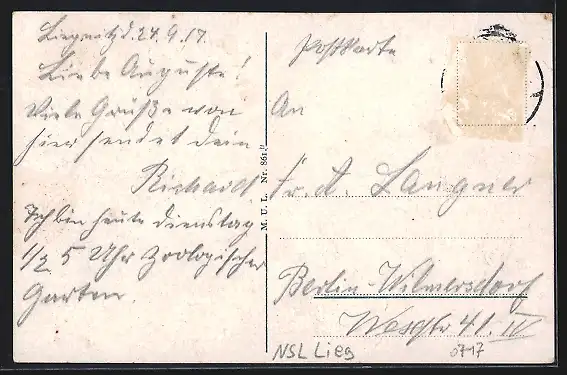 Liegnitz d. 24.9.17.
Liebe Auguste!
Viele Grüße von
hier sendet dein
Richard
Ich bin heute dienstag
1/2 5 Uhr Zoologischer
Garten.
M. U. L. Nr. 861
Postkarte
An
Fr. A. Langner
Berlin-Wilmersdorf
41 IV
NSL Lieg
0717